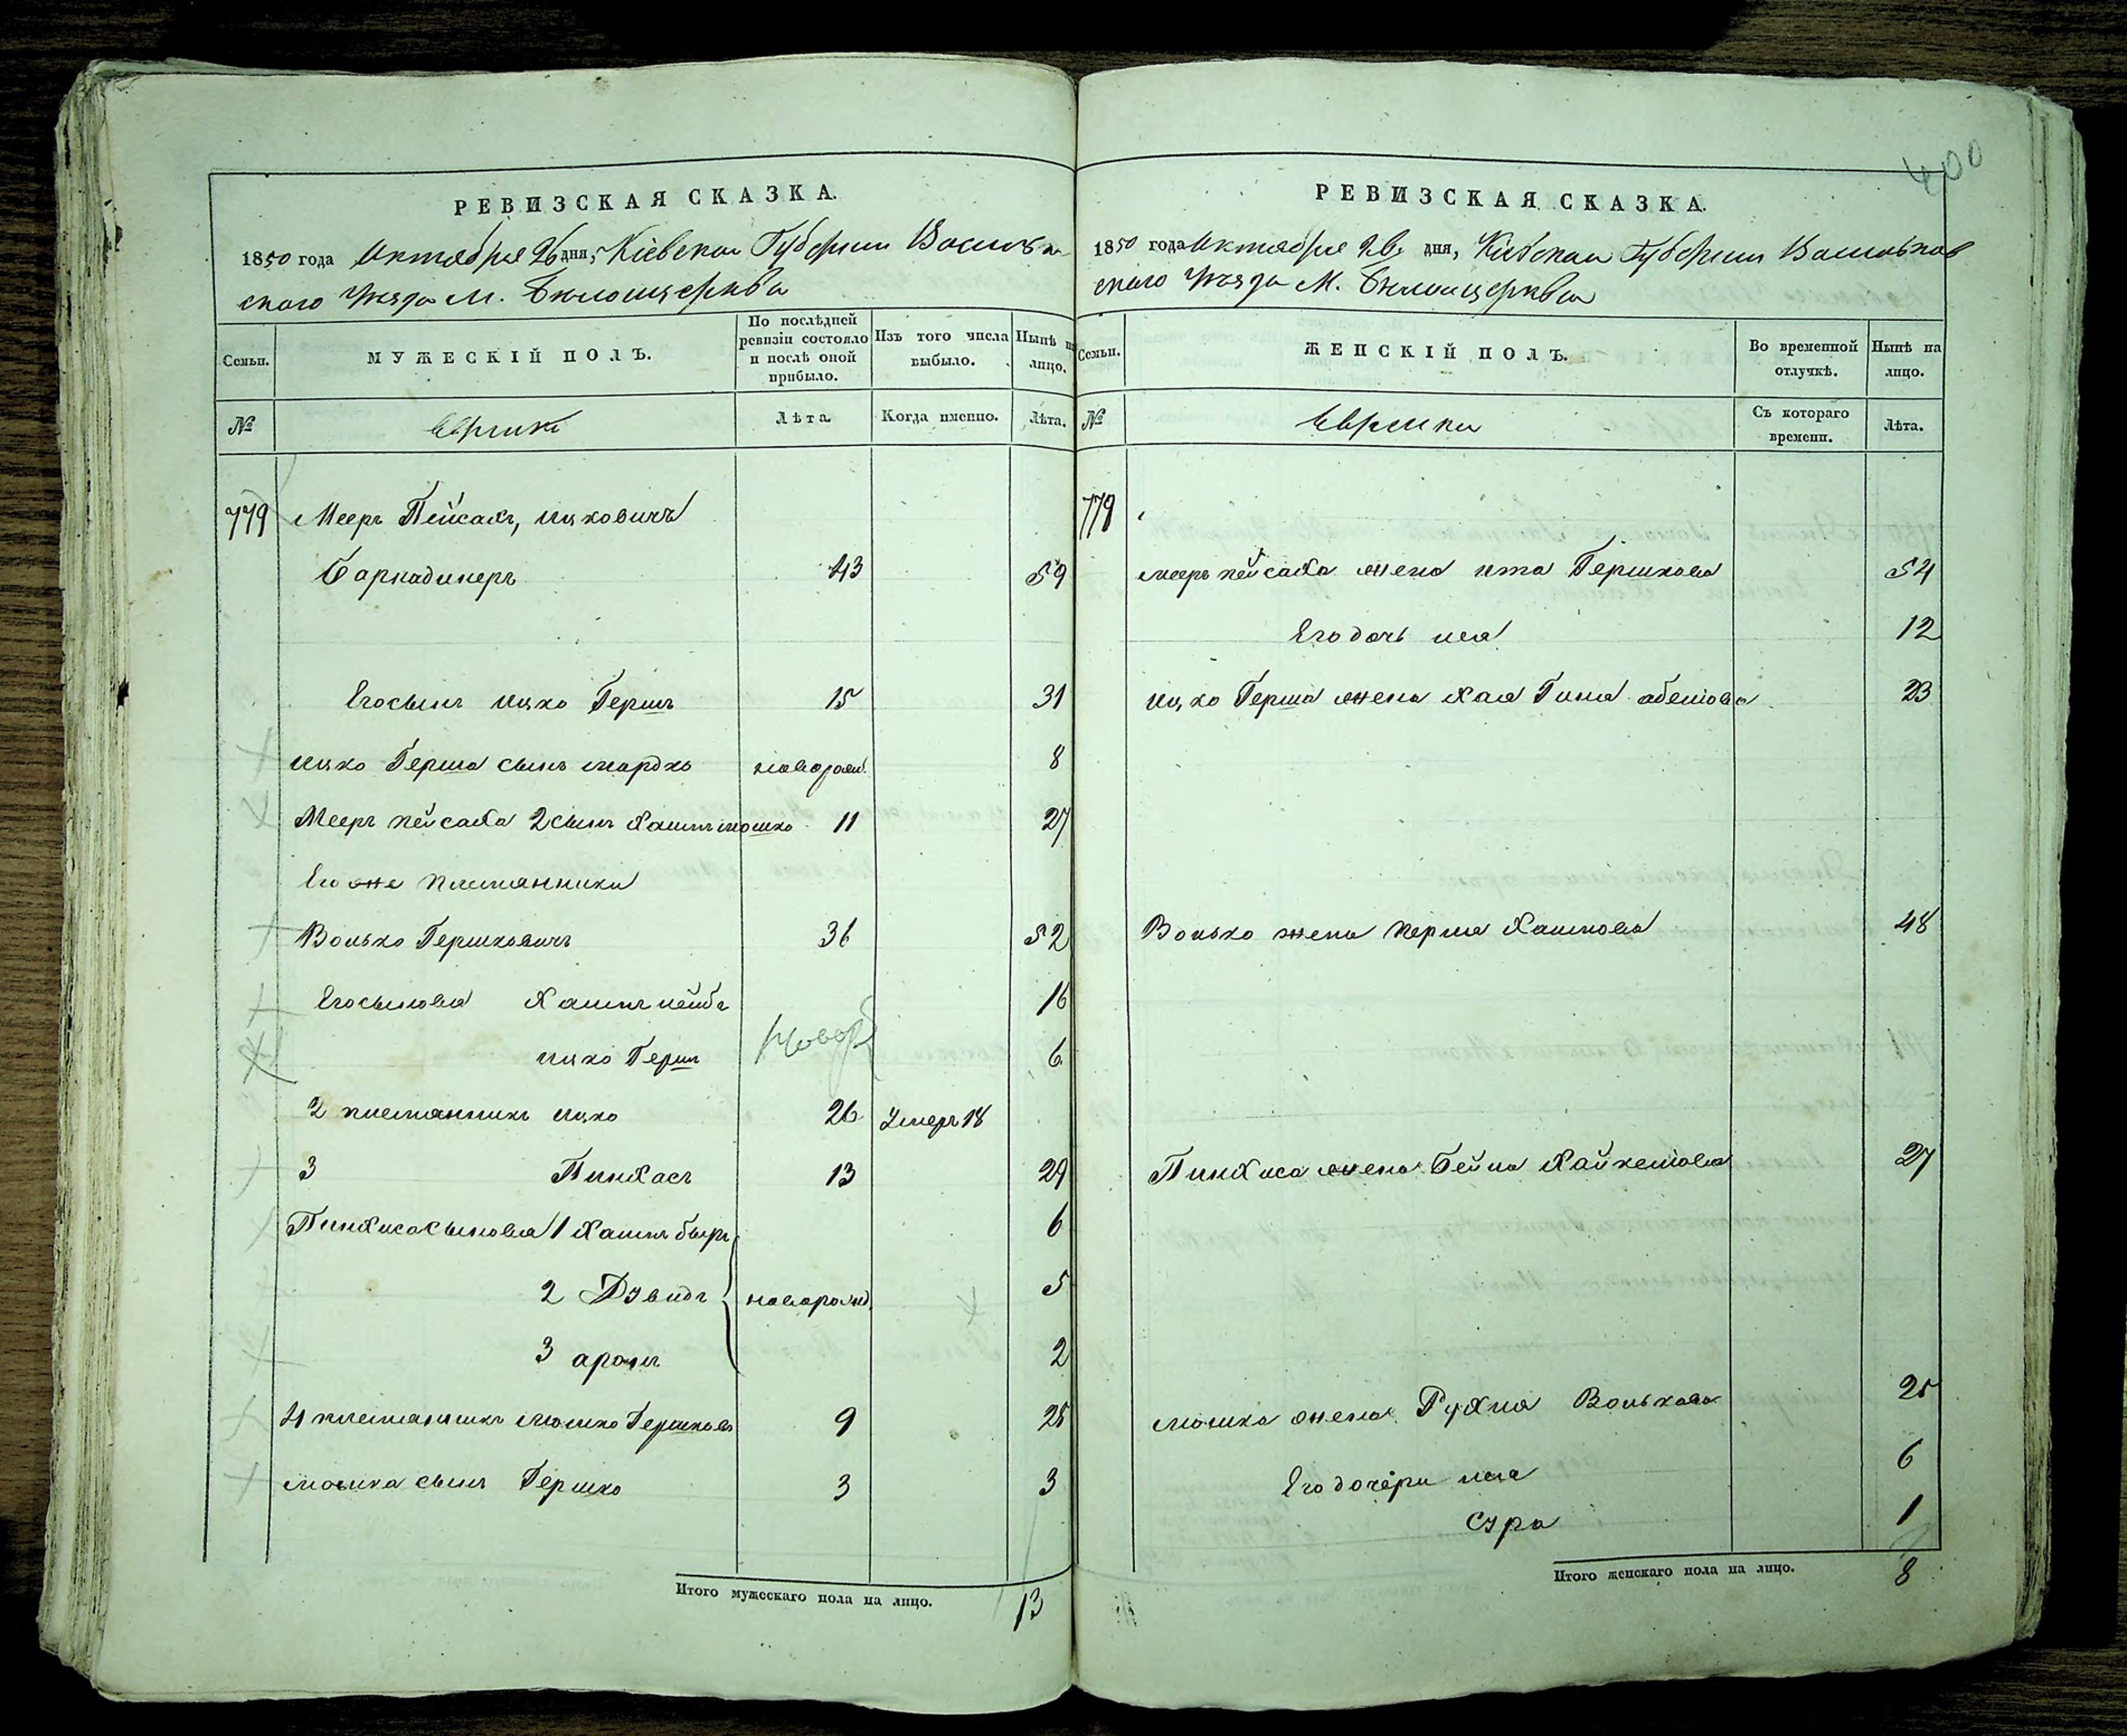 400
РЕВИЗСКАЯ СКАЗКА.
1850 года Октября 26 дня, Кіевской Губерніи Васильков
скаго Уѣзда М. Бѣлоцеркви
Семьи.
МУЖЕСКІЙ ПОЛЪ.
По послѣдней ревизіи состояло и послѣ оной прибыло.
Изъ того числа выбыло.
Нынѣ на лицо.
№
Евреи
Лѣта.
Когда именно.
Лѣта.
779 Мееръ Пейсахъ, Ицковичъ
Барнадинеръ 43 59
Его сынъ Ицко Гершъ 15 31
Ицко Герша сынъ Мордко новорожд. 8
Мееръ Пейсаха 2 сынъ Хаимъ Мошко 11 27
Его же племянники
Волько Гершковичъ 36 52
Его сыновья Хаимъ Лейбъ 16
Ицко Гершъ новор 6
2 племянникъ Ицко 26 Умеръ 18
3 Пинхасъ 13 29
Пинхаса сыновья 1 Хаимъ Беръ 6
2 Дувидъ новорожд. 5
3 Аронъ 2
4 племянникъ Мошко Гершковъ 9 25
Мошка сынъ Гершко 3 3
Итого мужескаго пола на лицо. 13
РЕВИЗСКАЯ СКАЗКА.
1850 года Октября 26 дня, Кіевской Губерніи Васильков
скаго Уѣзда М. Бѣлоцеркви
Семьи.
ЖЕНСКІЙ ПОЛЪ.
Во временной отлучкѣ.
Нынѣ на лицо.
№
Еврейки
Съ котораго времени.
Лѣта.
779
Мееръ Пейсаха жена Ита Гершкова 54
Его дочь Лея 12
Ицко Герша жена Хая 23
Волько жена Перля Хаимова 48
Пинхаса жена Бейла 27
Мошка жена Рухля Волькова 25
Его дочери Лея 6
Сура 1
Итого женскаго пола на лицо. 8